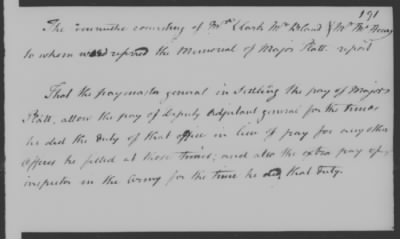 191
The Committe consisting of Mr Clark Mr Bland & Mr Mc Henry
to whom was referred the Memorial of Major Platt. report
That the paymaster general in settling the pay of Major
Platt, allow the pay of Deputy Adjutant general for the times
he did the duty of that office in lieu of pay for any other
offices he filled at those times; and also the extra pay of
inspector in the Army for the time he did that duty.